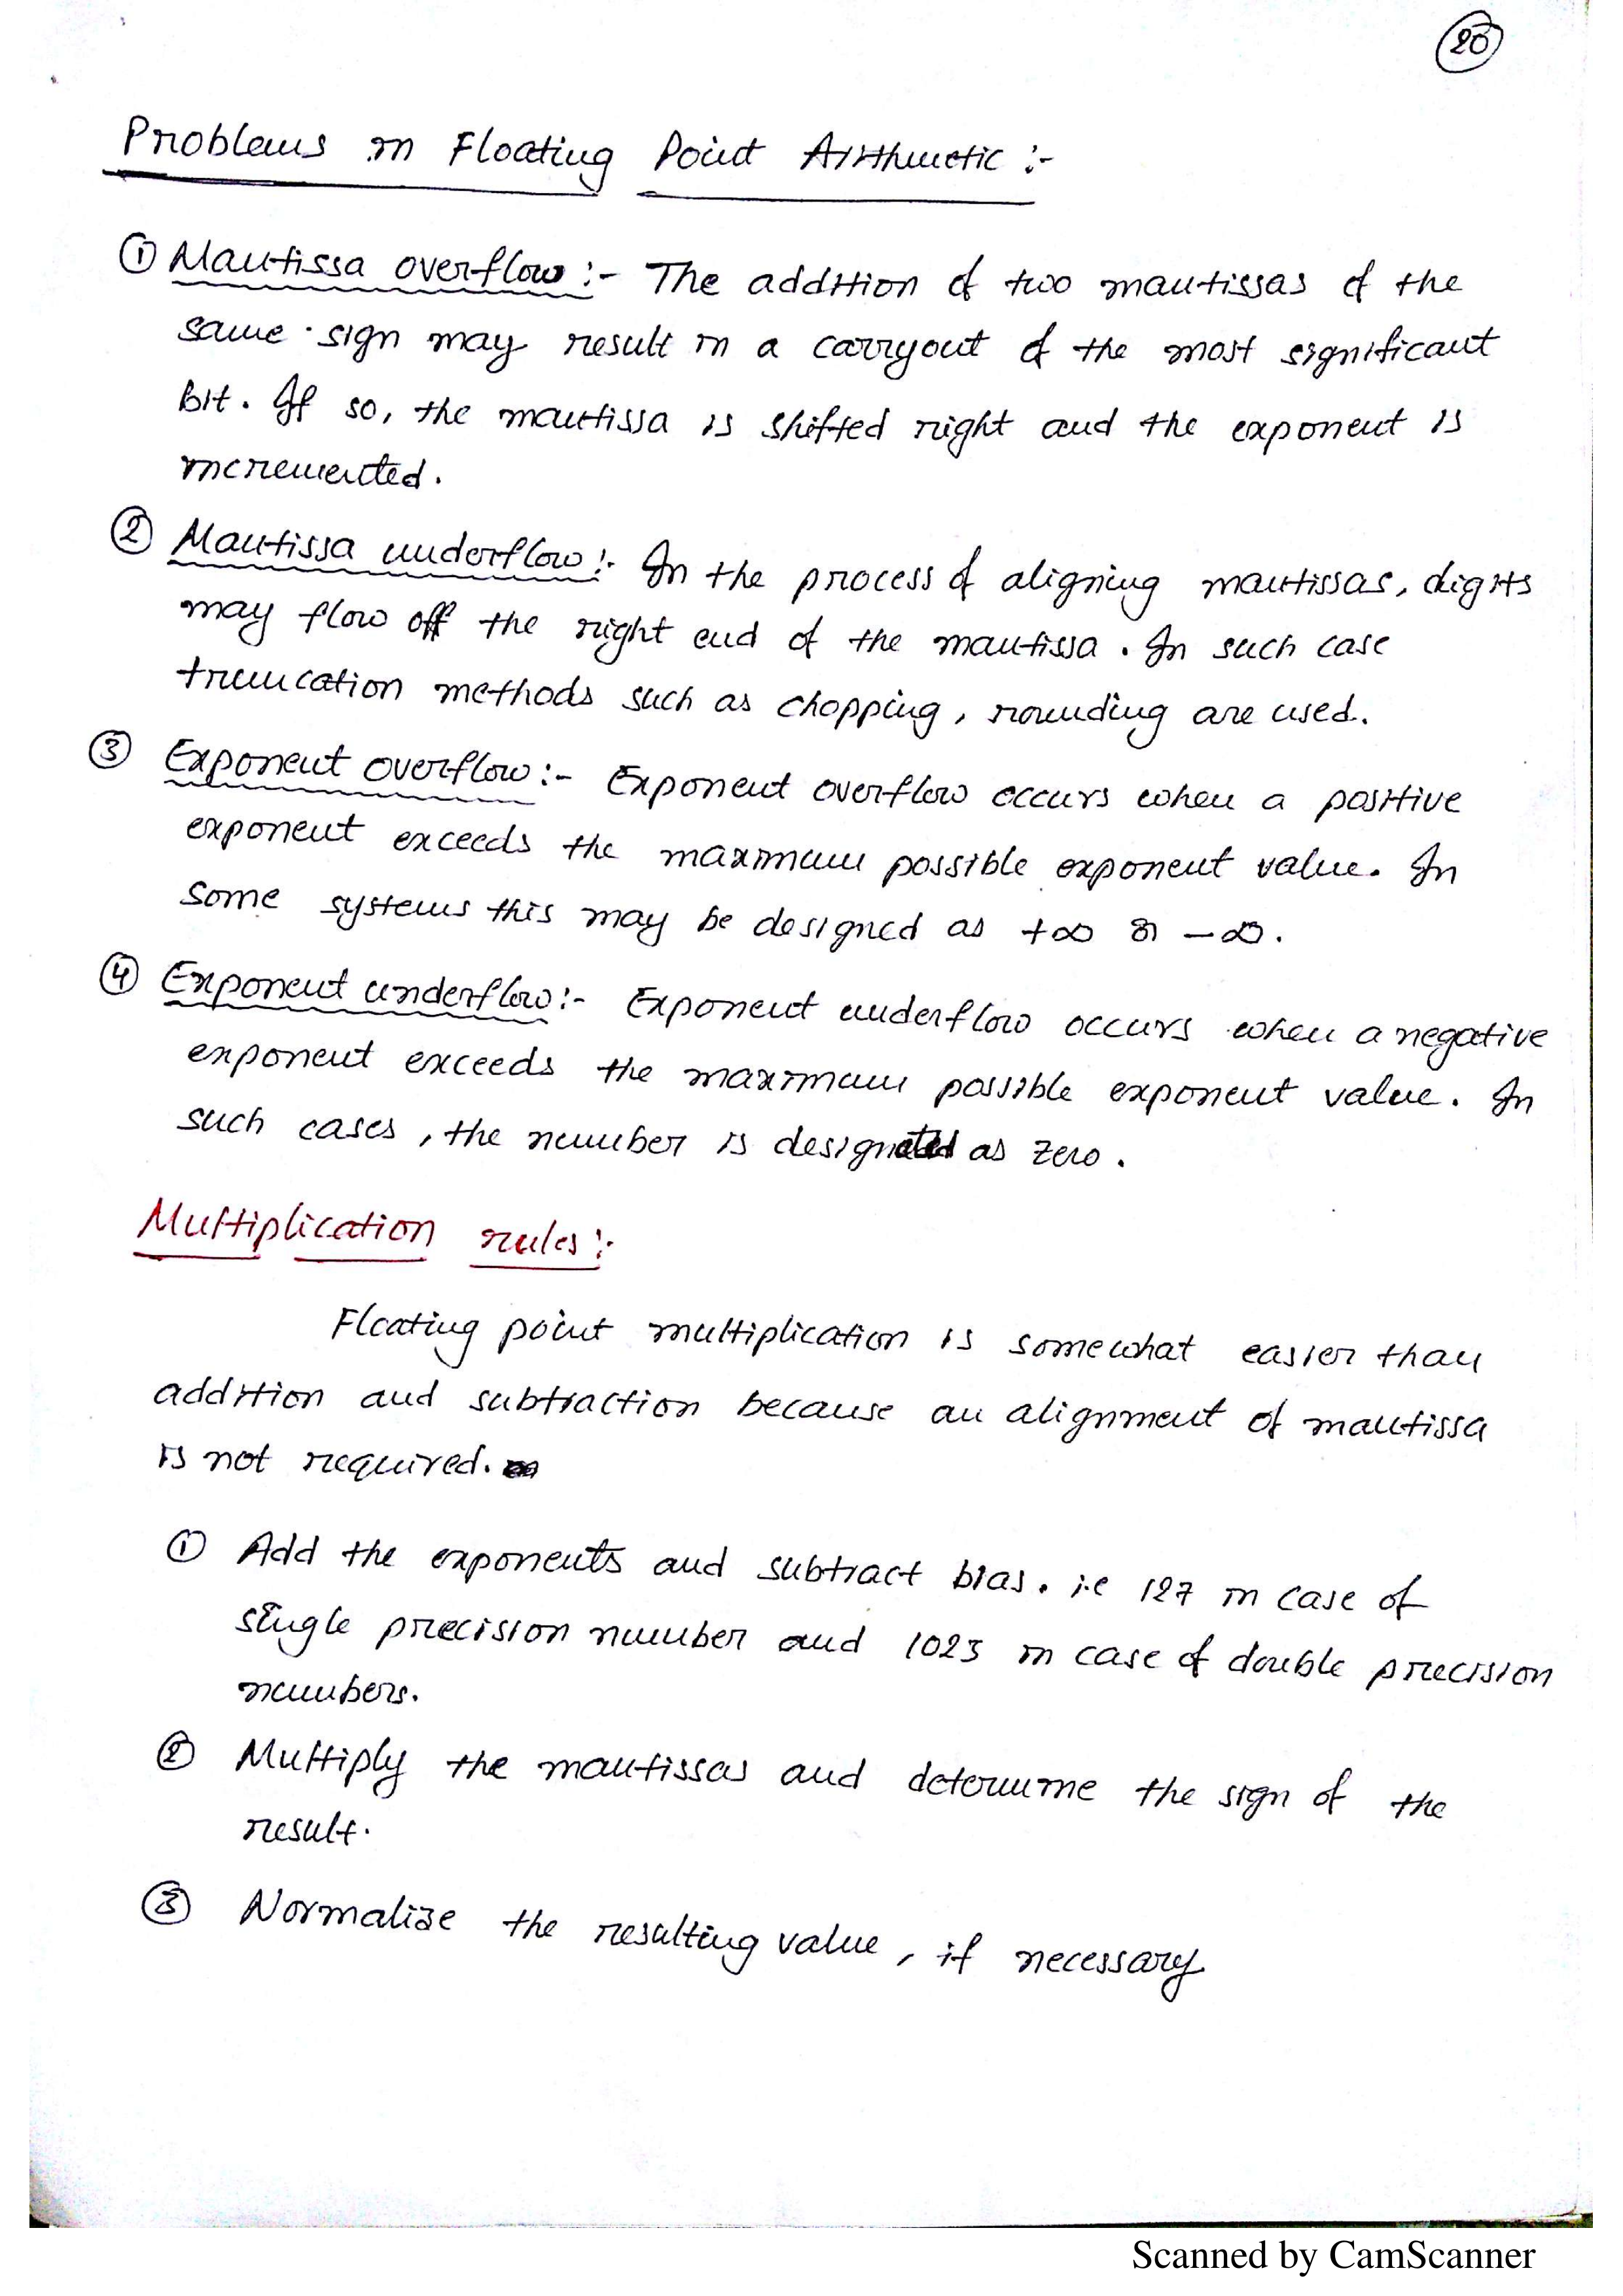 20
Problems in Floating Point Arithmetic :-
① Mantissa overflow :- The addition of two mantissas of the
same sign may result in a carryout of the most significant
bit. If so, the mantissa is shifted right and the exponent is
incremented.
② Mantissa underflow :- In the process of aligning mantissas, digits
may flow off the right end of the mantissa. In such case
truncation methods such as chopping, rounding are used.
③ Exponent overflow :- Exponent overflow occurs when a positive
exponent exceeds the maximum possible exponent value. In
some systems this may be designed as +∞ or -∞.
④ Exponent underflow :- Exponent underflow occurs when a negative
exponent exceeds the maximum possible exponent value. In
such cases, the number is designated as zero.
Multiplication rules :-
Floating point multiplication is somewhat easier than
addition and subtraction because an alignment of mantissa
is not required.
① Add the exponents and subtract bias. i.e 127 in case of
single precision number and 1023 in case of double precision
numbers.
② Multiply the mantissas and determine the sign of the
result.
③ Normalize the resulting value, if necessary
Scanned by CamScanner